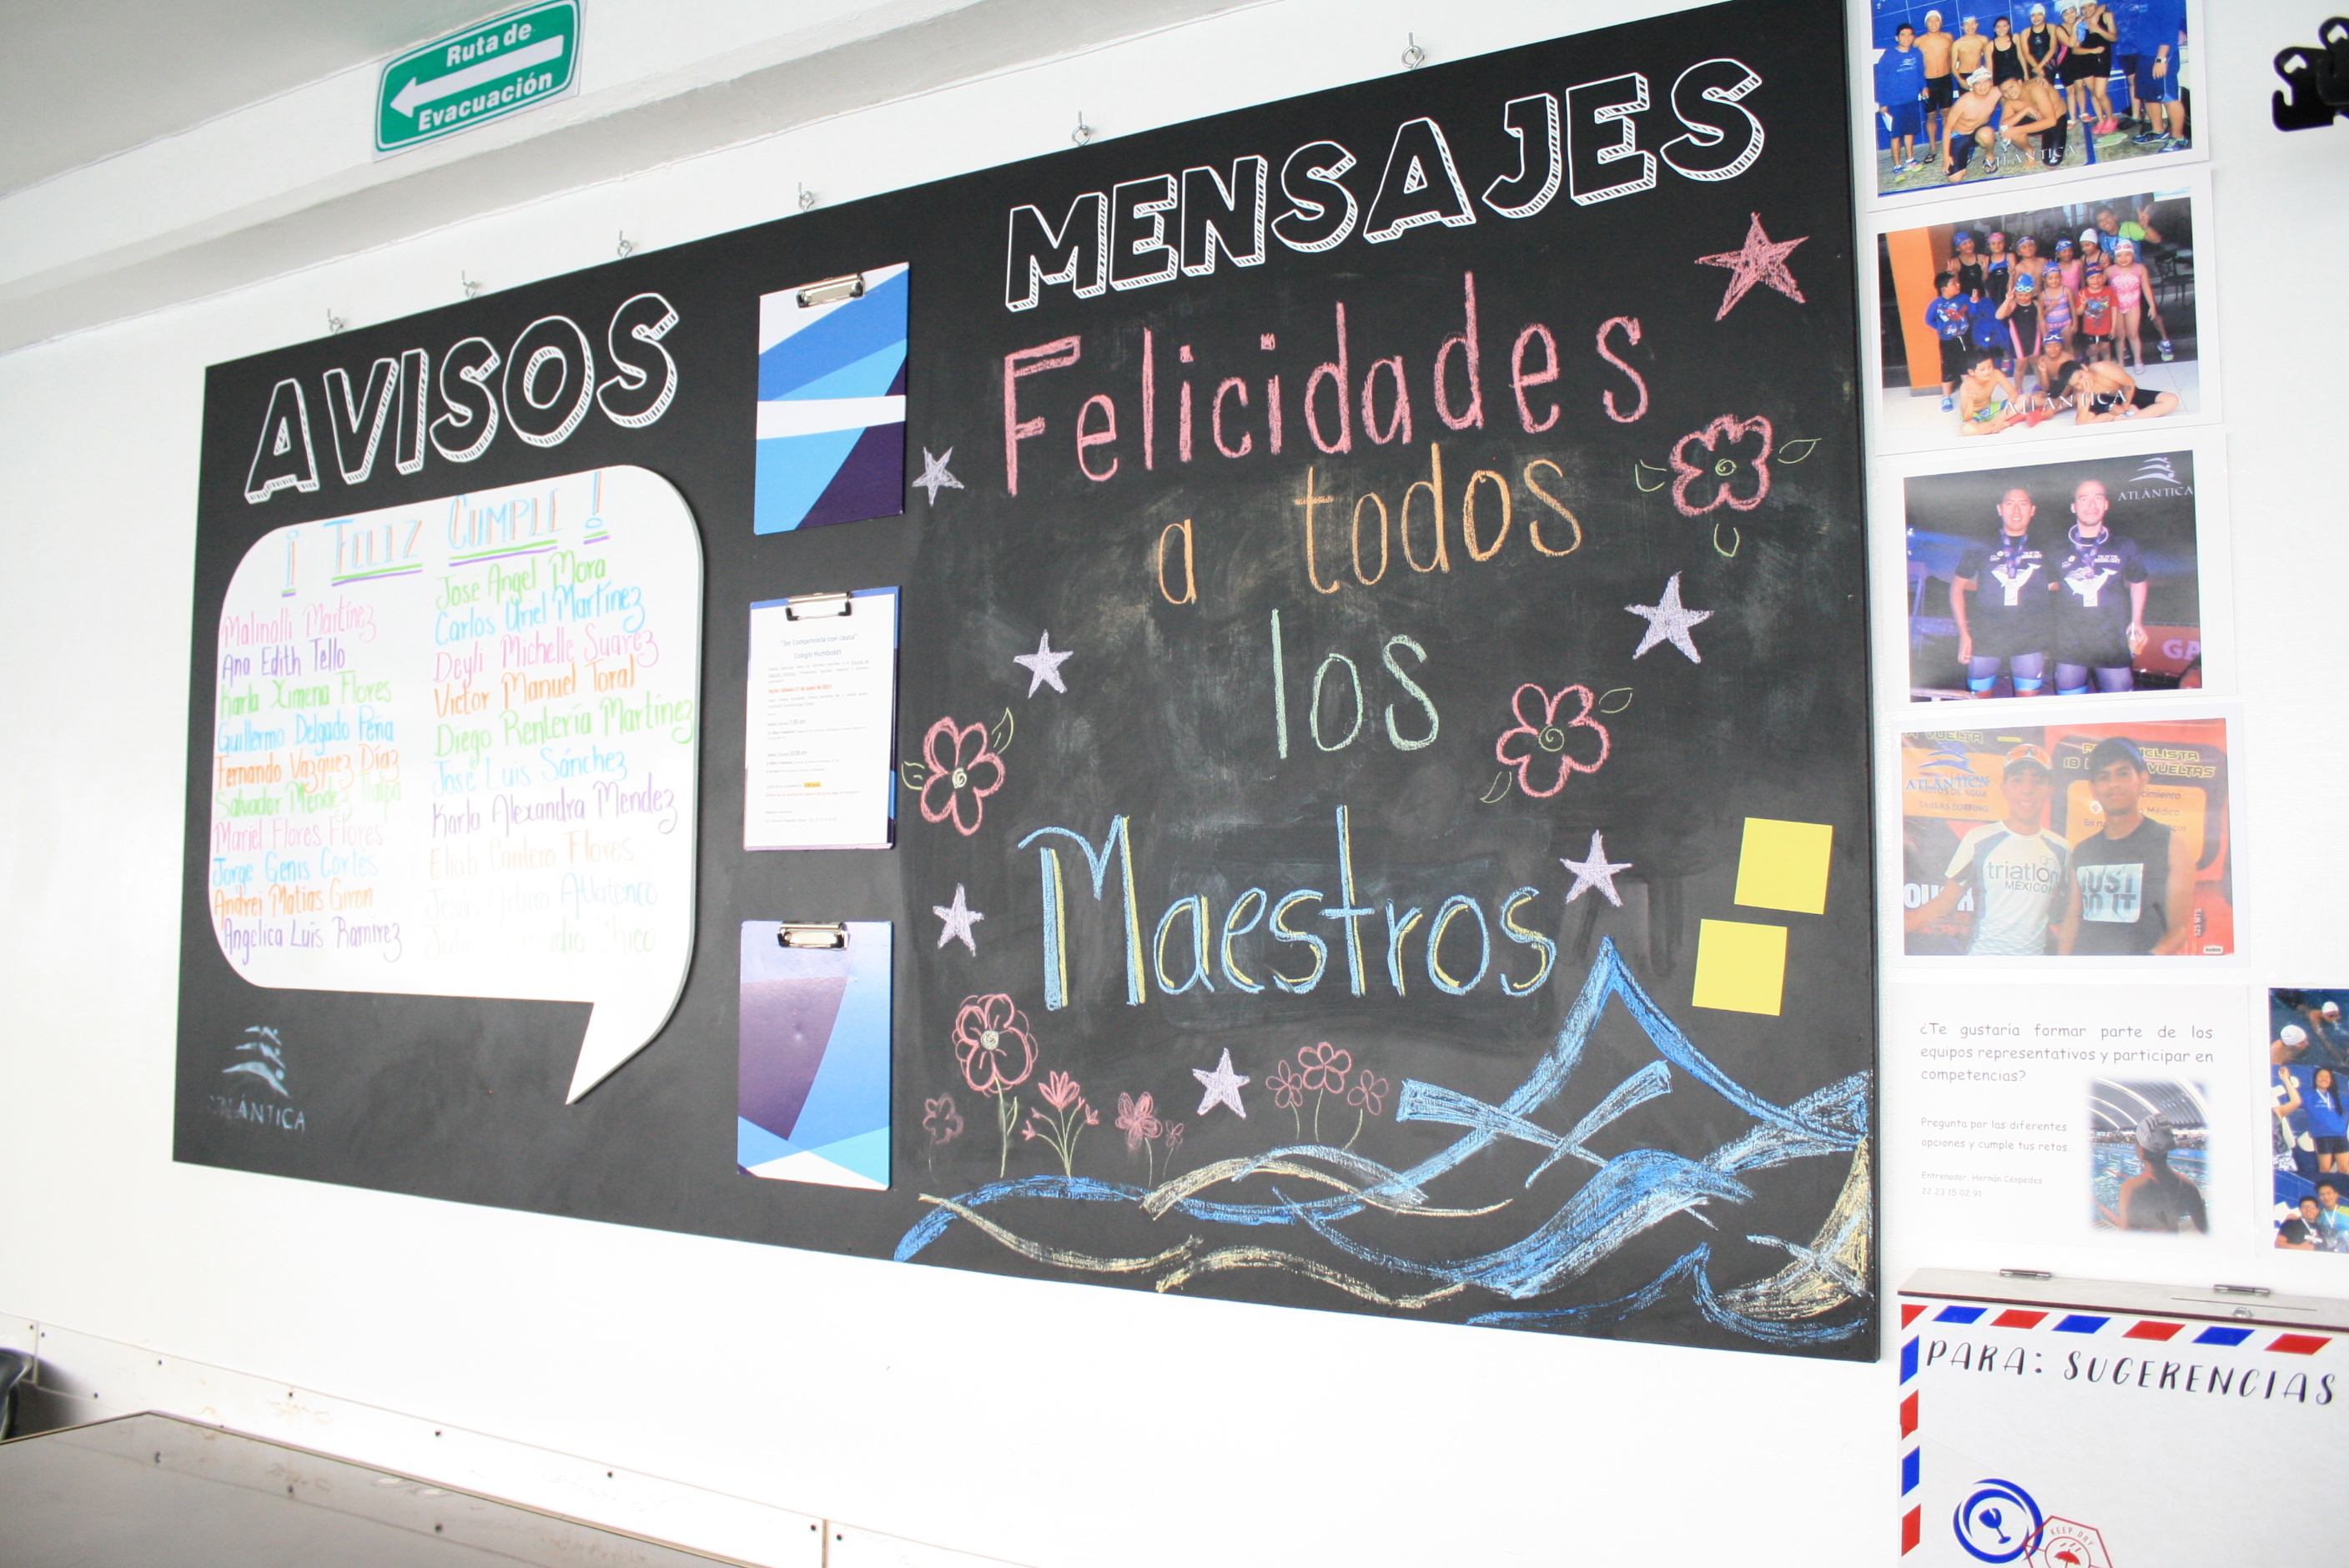 Ruta de
Evacuación
AVISOS
¡ FELIZ CUMPLE !
Malinalli Martínez
Ana Edith Tello
Karla Ximena Flores
Guillermo Delgado Peña
Fernando Vazquez Díaz
Salvador Mendez Tlalpa
Mariel Flores Flores
Jorge Genis Cortés
Andrei Matias Giron
Angelica Luis Ramirez
Jose Angel Mora
Carlos Uriel Martínez
Deyli Michelle Suarez
Victor Manuel Toral
Diego Rentería Martínez
José Luis Sánchez
Karla Alexandra Mendez
Eliab Cantero Flores
Jesús Arturo Atlatenco
ATLÁNTICA
"3er Competencia con causa"
Colegio Humboldt
MENSAJES
Felicidades
a todos
los
Maestros
ATLÁNTICA
ATLÁNTICA
ATLÁNTICA
VUELTA
ATLÁNTICA
TABLAS SURFING
VUELTAS
triatlón
MEXICO
¿Te gustaría formar parte de los
equipos representativos y participar en
competencias?
Pregunta por las diferentes
opciones y cumple tus retos
Entrenador Hernán Céspedes
22 23 15 02 91
PARA: SUGERENCIAS
KEEP DRY